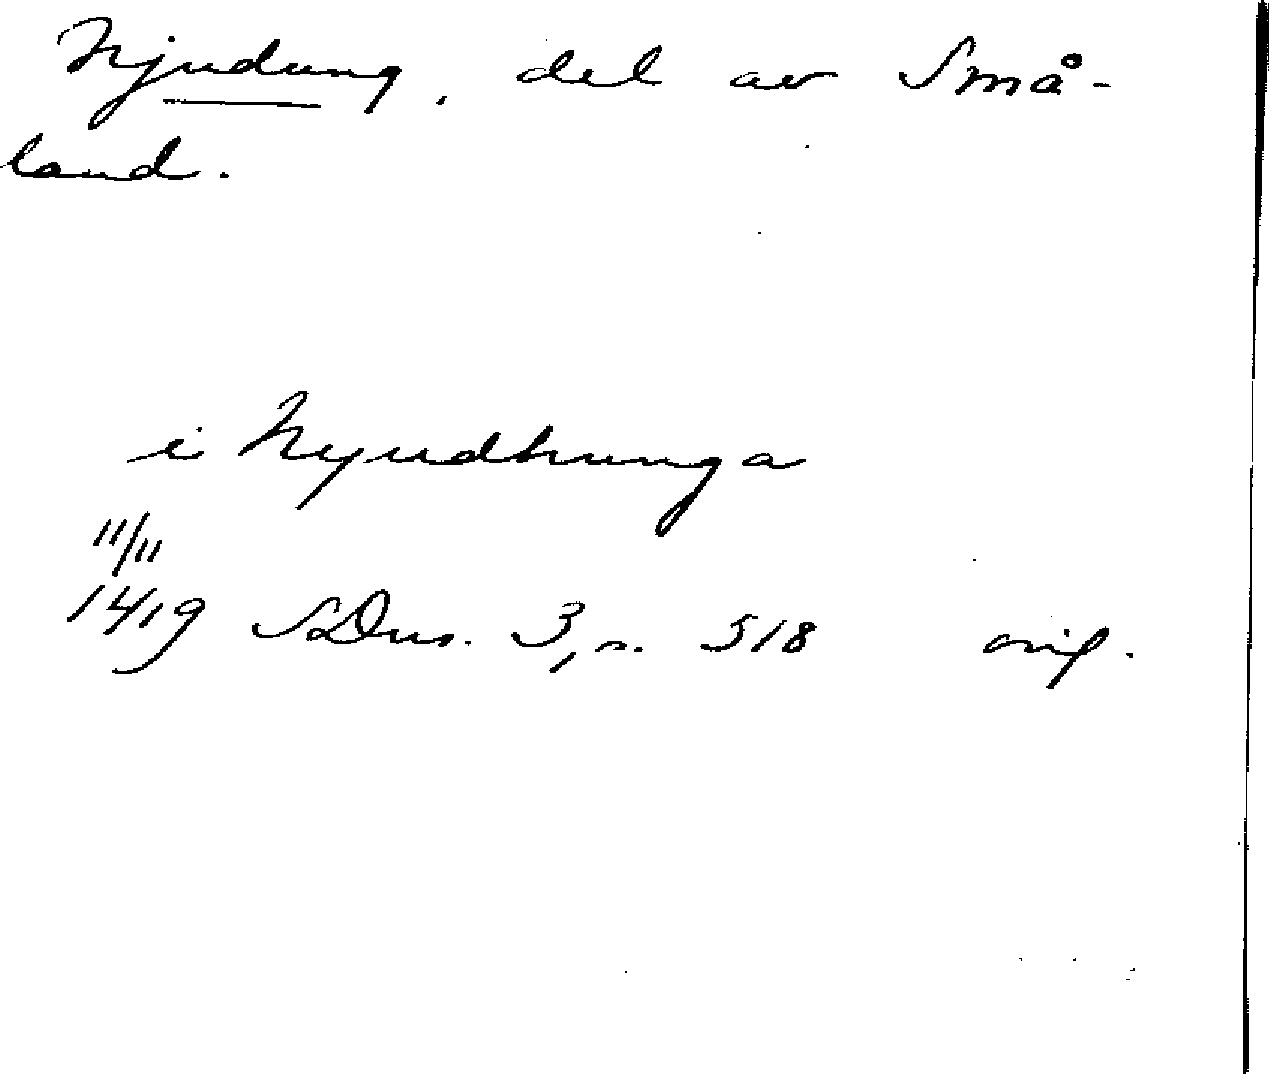 Njudung, del av Små-
land.
i Nyudhunga
11/11
1419 SDns. 3, s. 518 orig.